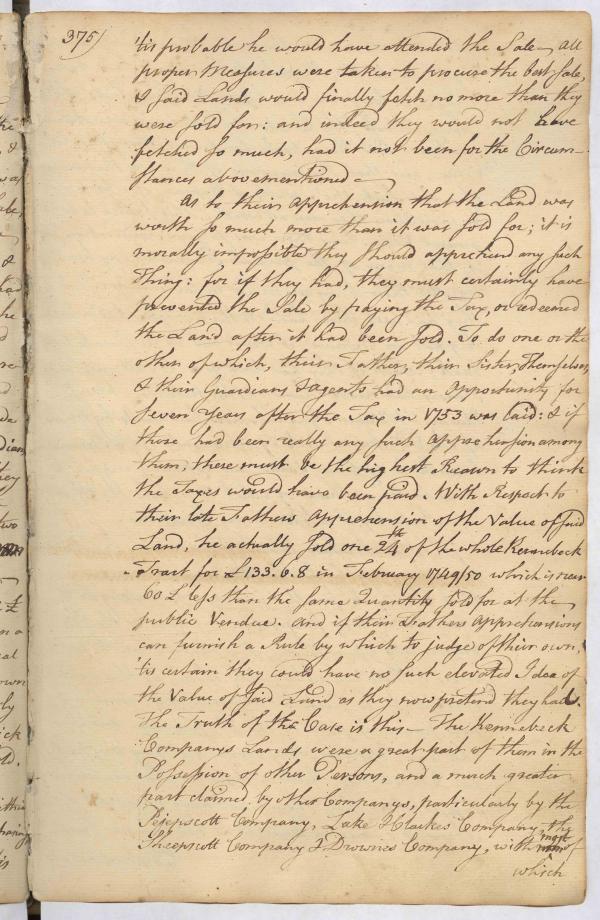 375)
'tis probable he would have attended the Sale — all
proper Measures were taken to procure the best Sale,
& said Lands would finally fetch no more than they
were sold for: and indeed they would not have
fetched so much, had it not been for the Circum-
stances abovementioned —
As to their apprehension that the Land was
worth so much more than it was sold for; it is
morally impossible they should apprehend any such
Thing: for if they had, they must certainly have
prevented the Sale by paying the Tax, or redeemed
the Land after it had been sold. To do one or the
other of which, their Father, their Sister, Themselves,
& their Guardians & agents had an Opportunity for
seven years after the Tax in 1753 was laid: & if
those had been really any such apprehension among
them, there must be the highest Reason to think
the Taxes would have been paid. With Respect to
their late Fathers apprehension of the Value of said
Land, he actually sold one 24th of the whole Kennebeck
Tract for £133.6.8 in February 1749/50 which is near
60£ less than the same Quantity sold for at the
public Vendue. And if their Fathers apprehensions
can furnish a Rule by which to judge of their own,
'tis certain they could have no such elevated Idea of
the Value of said Land as they now pretend they had.
The Truth of the Case is this — The Kennebeck
Companys Lands were a great part of them in the
Possession of other Persons, and a much greater
part claimed by other Companys, particularly by the
Pejepscott Company, Lake & Clarkes Company, the
Sheepscott Company & Drownes Company, with most of
which